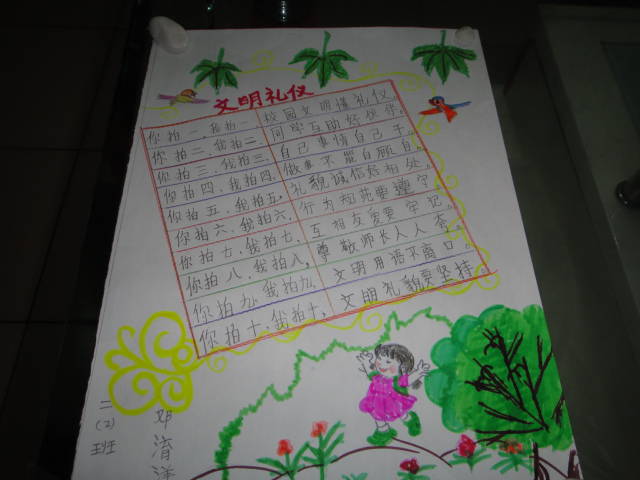 文明礼仪
你拍一、我拍一、校园文明懂礼仪。
你拍二、我拍二、同学互助好伙伴。
你拍三、我拍三、自己事情自己干。
你拍四、我拍四、做事不留自顾自。
你拍五、我拍五、礼貌诚信好相处。
你拍六、我拍六、行为规范要遵守。
你拍七、我拍七、互相友爱要牢记。
你拍八、我拍八、尊敬师长人人夸。
你拍九、我拍九、文明用语不离口。
你拍十、我拍十、文明礼貌要坚持。
二(2)班
邓淯洋